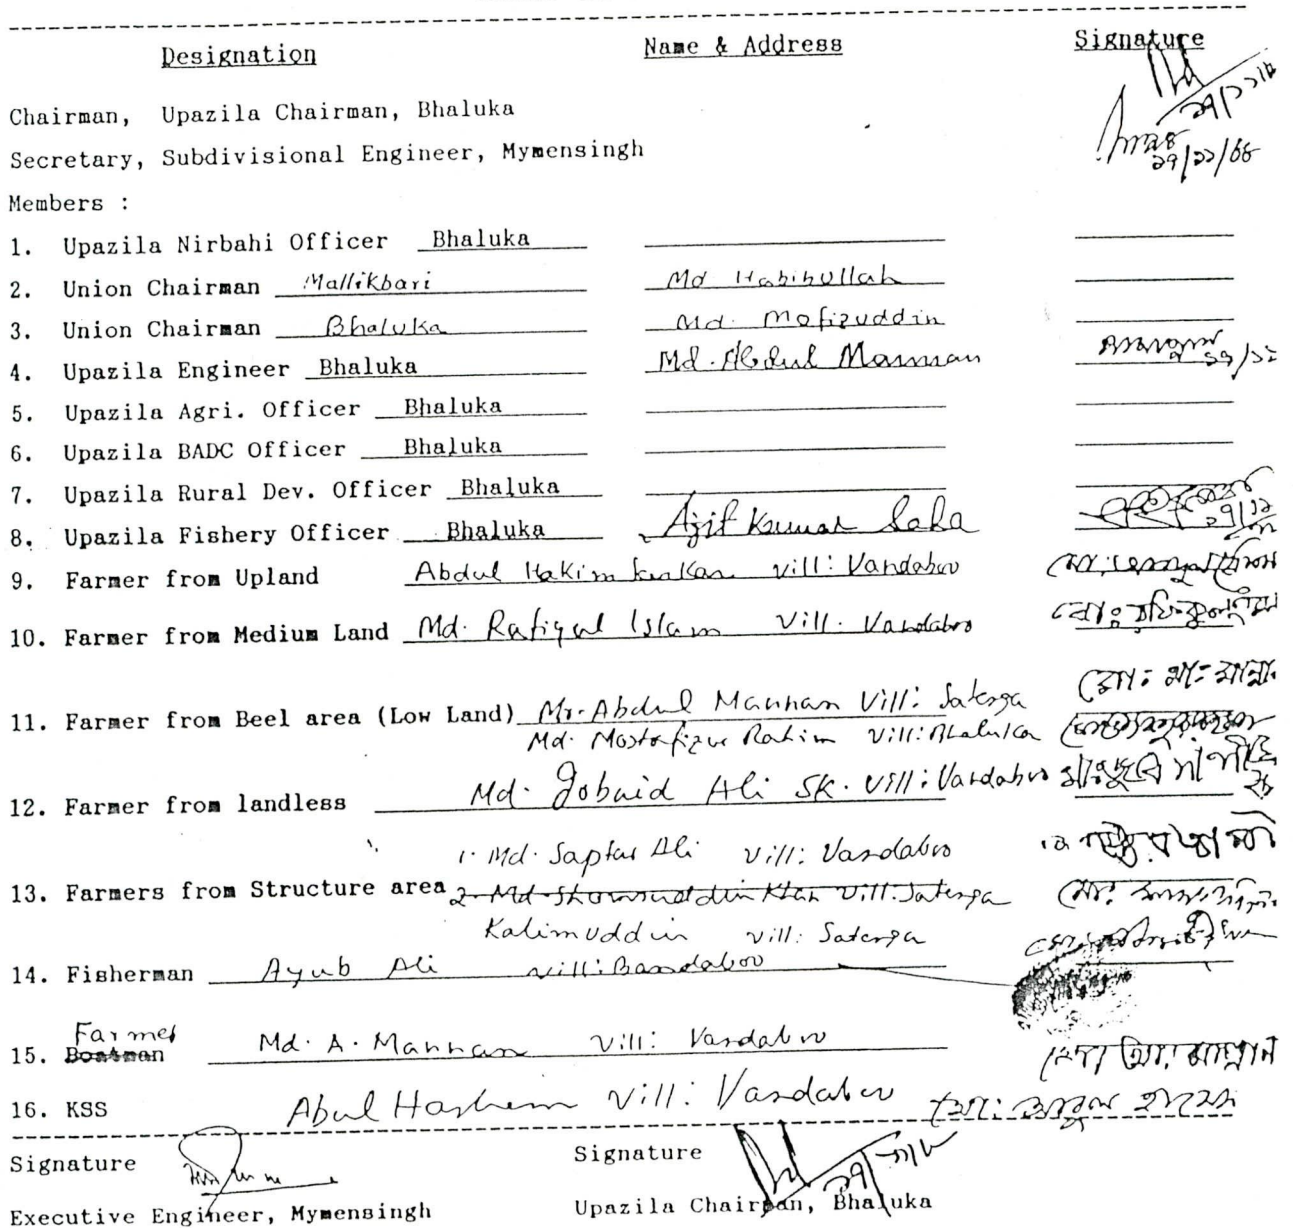 Designation Name & Address Signature
Chairman, Upazila Chairman, Bhaluka
Secretary, Subdivisional Engineer, Mymensingh
২৭/১১/৮৮
Members :
1. Upazila Nirbahi Officer Bhaluka
2. Union Chairman Mallikbari Md Habibullah
3. Union Chairman Bhaluka Md. Mofizuddin
4. Upazila Engineer Bhaluka Md. Abdul Mannan
5. Upazila Agri. Officer Bhaluka
6. Upazila BADC Officer Bhaluka
7. Upazila Rural Dev. Officer Bhaluka
8. Upazila Fishery Officer Bhaluka Ajit Kumar Saha
9. Farmer from Upland Abdul Hakim Vill: Vandabro
10. Farmer from Medium Land Md. Rafiqul Islam Vill. Vandabro মোঃ রফিকুল
11. Farmer from Beel area (Low Land) Mr. Abdul Mannan Vill: Satenga মোঃ আঃ মান্নান
Md. Mostafizur Rahim Vill: Bhaluka
12. Farmer from landless Md. Jobaid Ali Sk. Vill: Vandabro
1. Md. Saptar Ali Vill: Vandabro
13. Farmers from Structure area 2. Md. Shamsuddin Khan Vill: Satenga
Kalimuddin Vill: Satenga
14. Fisherman Ayub Ali Vill: Bandabov
Farmer
15. Boatman Md. A. Mannan Vill: Vandabro মোঃ আঃ মান্নান
16. KSS Abul Hashem Vill: Vandabro মোঃ আবুল হাসেম
Signature Signature
Executive Engineer, Mymensingh Upazila Chairman, Bhaluka